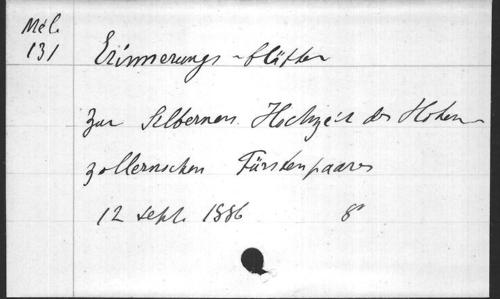 Mél.
131
Erinnerungs-blätter
zur Silbernen Hochzeit des Hohen-
zollernschen Fürstenpaares
12 sept. 1886 8°